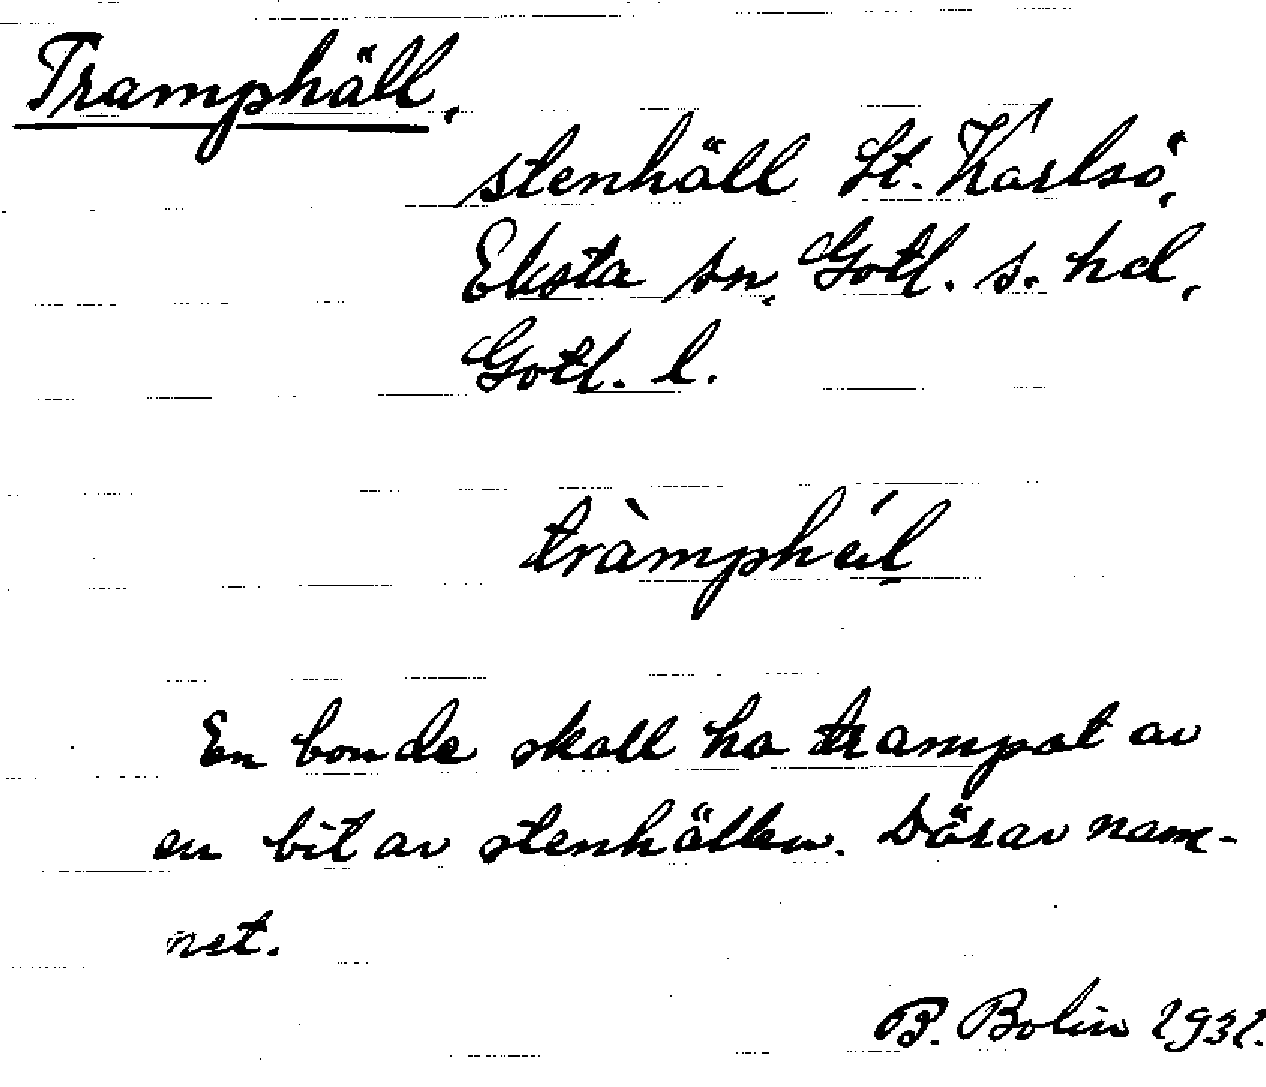 Tramphäll,
stenhäll St. Karlsö,
Eksta sn, Gotl. s. hd,
Gotl. l.
En bonde skall ha trampat av
en bit av stenhällen. Därav nam-
net.
B. Bolin 1931.